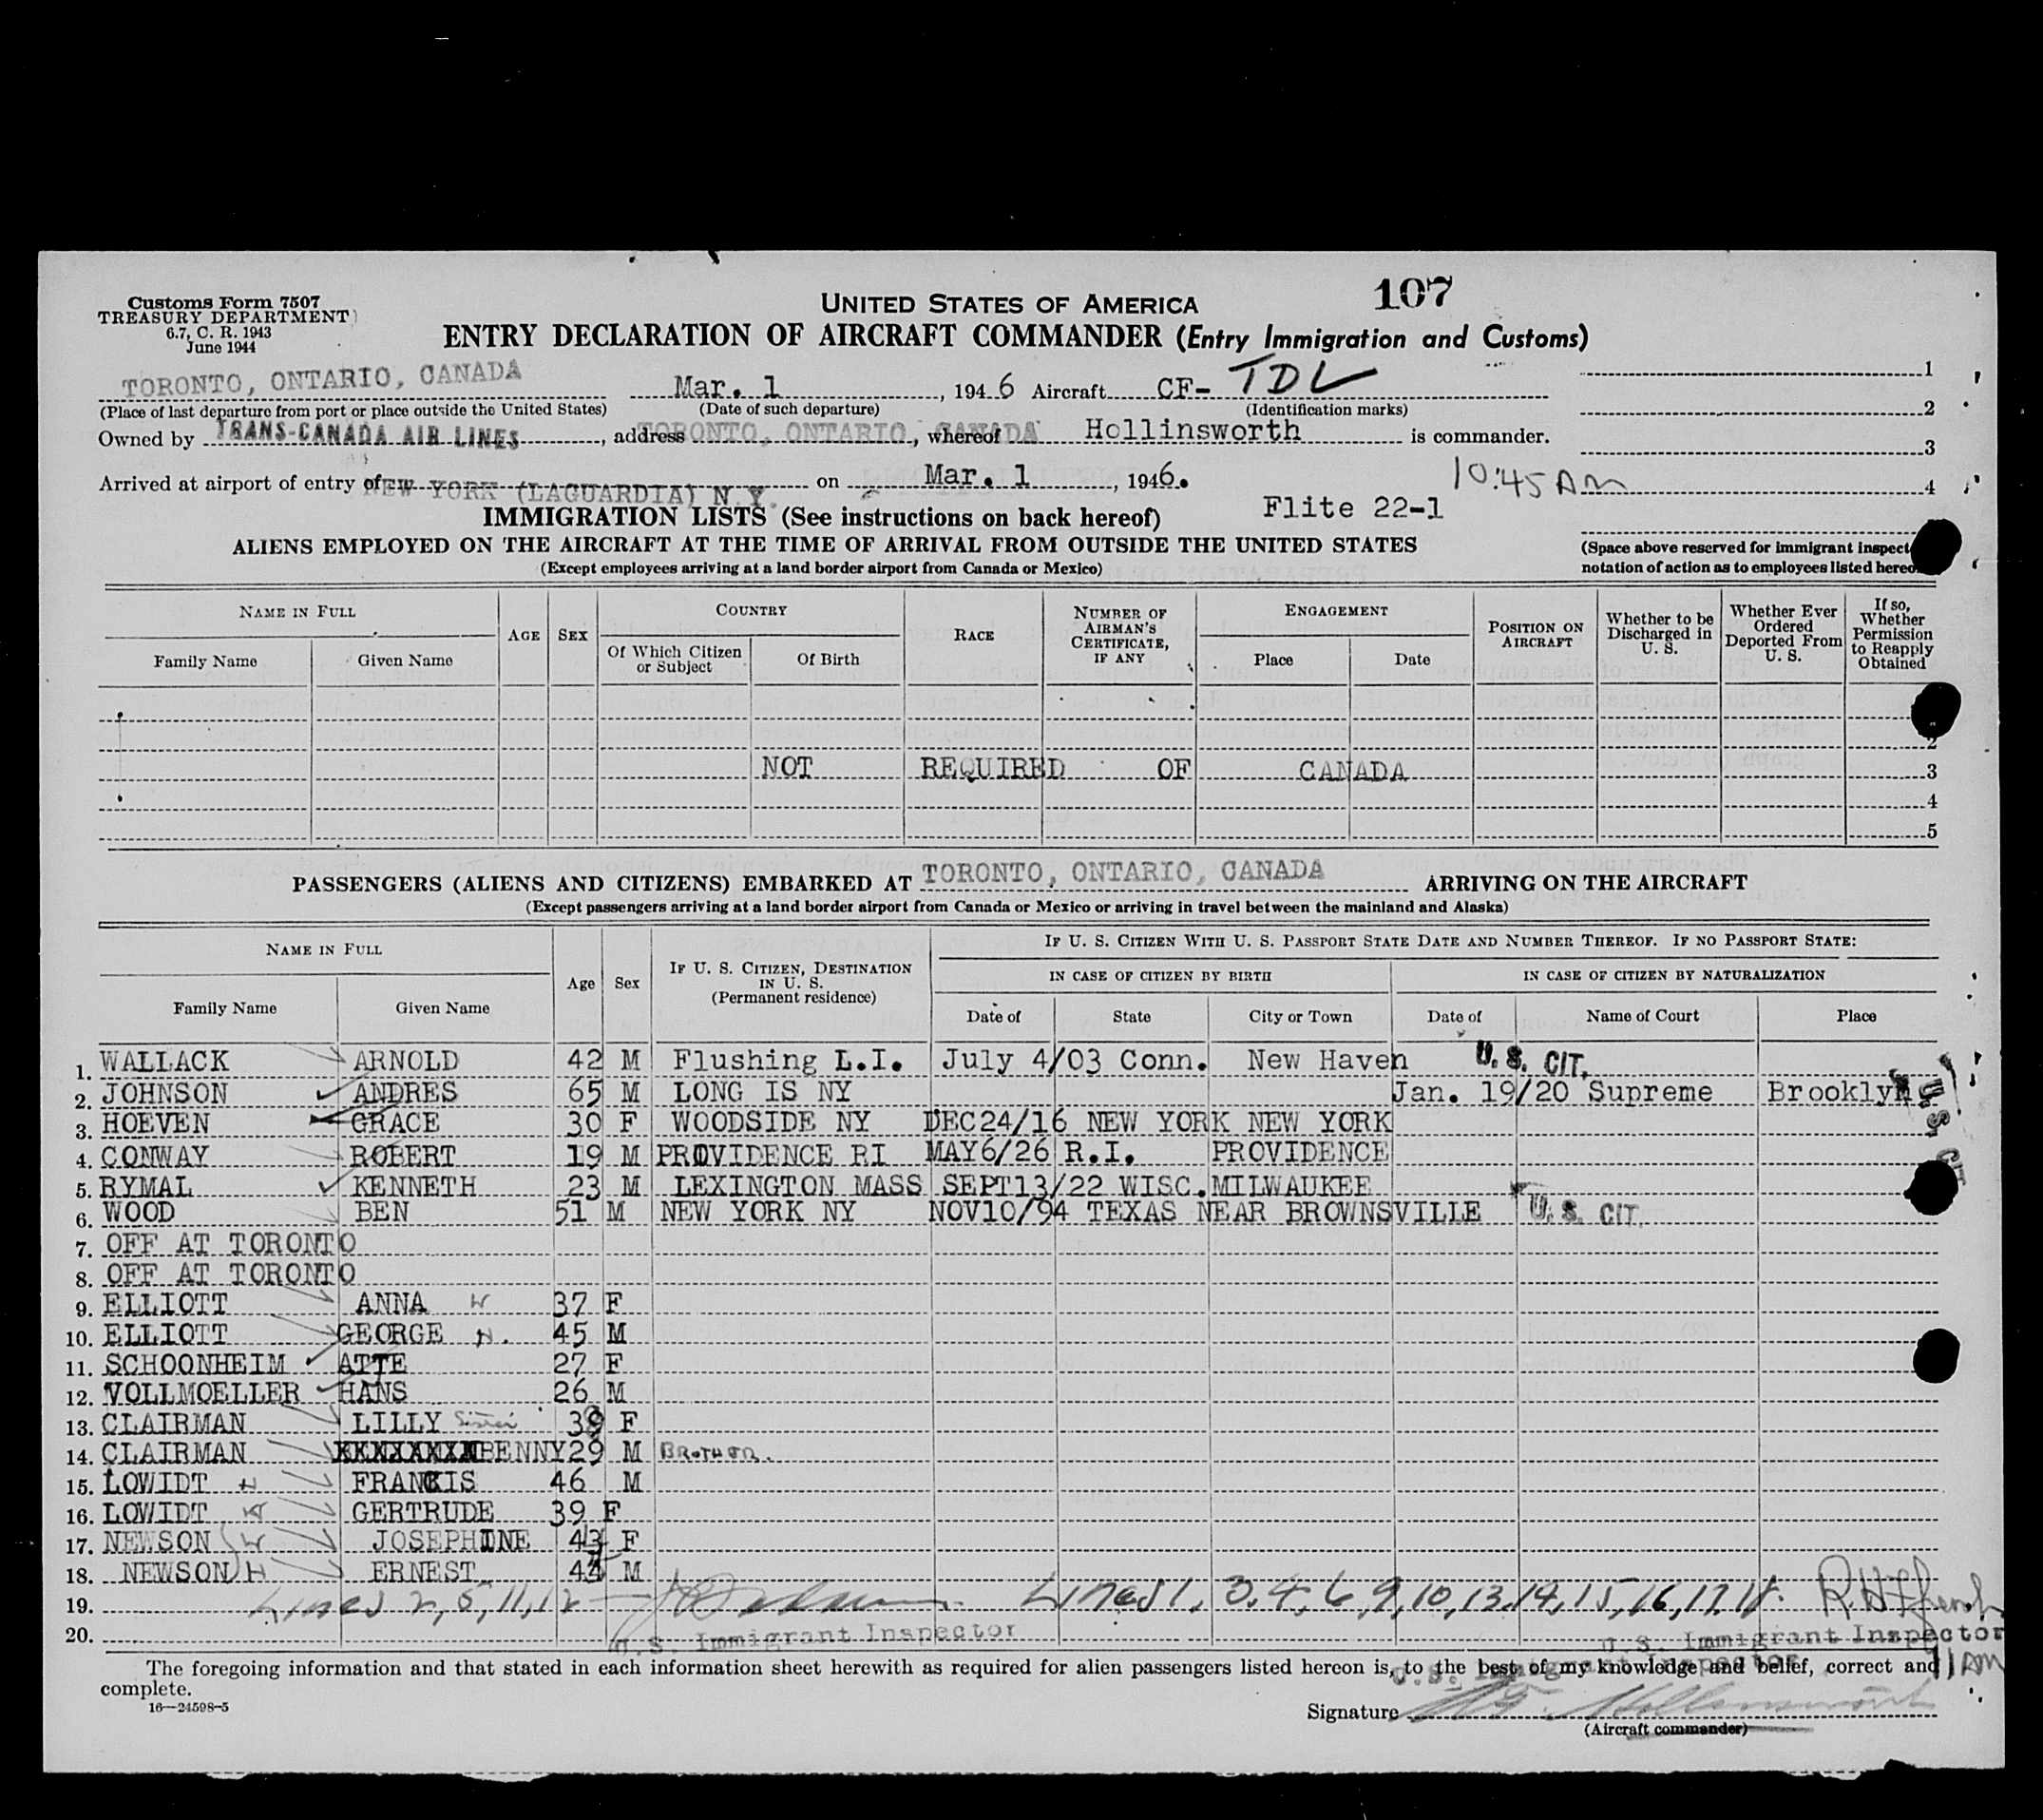 107
Customs Form 7507
TREASURY DEPARTMENT
6.7, C. R. 1943
June 1944
UNITED STATES OF AMERICA
ENTRY DECLARATION OF AIRCRAFT COMMANDER (Entry Immigration and Customs)
TORONTO, ONTARIO, CANADA Mar. 1, 1946 Aircraft CF- TDL 1
(Place of last departure from port or place outside the United States) (Date of such departure) (Identification marks) 2
Owned by TRANS-CANADA AIR LINES, address TORONTO, ONTARIO, CANADA, whereof Hollinsworth is commander. 3
Arrived at airport of entry of NEW YORK (LAGUARDIA) N.Y. on Mar. 1, 1946. 10:45 AM 4
IMMIGRATION LISTS (See instructions on back hereof) Flite 22-1
ALIENS EMPLOYED ON THE AIRCRAFT AT THE TIME OF ARRIVAL FROM OUTSIDE THE UNITED STATES
(Except employees arriving at a land border airport from Canada or Mexico)
(Space above reserved for immigrant inspect
notation of action as to employees listed hereo
NAME IN FULL AGE SEX COUNTRY RACE NUMBER OF AIRMAN'S CERTIFICATE, IF ANY ENGAGEMENT POSITION ON AIRCRAFT Whether to be Discharged in U. S. Whether Ever Ordered Deported From U. S. If so, Whether Permission to Reapply Obtained
Family Name Given Name Of Which Citizen or Subject Of Birth Place Date
2
NOT REQUIRED OF CANADA 3
4
5
PASSENGERS (ALIENS AND CITIZENS) EMBARKED AT TORONTO, ONTARIO, CANADA ARRIVING ON THE AIRCRAFT
(Except passengers arriving at a land border airport from Canada or Mexico or arriving in travel between the mainland and Alaska)
NAME IN FULL Age Sex IF U. S. CITIZEN, DESTINATION IN U. S. (Permanent residence) IF U. S. CITIZEN WITH U. S. PASSPORT STATE DATE AND NUMBER THEREOF. IF NO PASSPORT STATE:
IN CASE OF CITIZEN BY BIRTH IN CASE OF CITIZEN BY NATURALIZATION
Family Name Given Name Date of State City or Town Date of Name of Court Place
1. WALLACK ARNOLD 42 M Flushing L.I. July 4/03 Conn. New Haven U.S. CIT.
2. JOHNSON ANDRES 65 M LONG IS NY Jan. 19/20 Supreme Brooklyn U.S. CIT
3. HOEVEN GRACE 30 F WOODSIDE NY DEC24/16 NEW YORK NEW YORK
4. CONWAY ROBERT 19 M PROVIDENCE RI MAY6/26 R.I. PROVIDENCE
5. RYMAL KENNETH 23 M LEXINGTON MASS SEPT13/22 WISC. MILWAUKEE
6. WOOD BEN 51 M NEW YORK NY NOV10/94 TEXAS NEAR BROWNSVILLE U.S. CIT.
7. OFF AT TORONTO
8. OFF AT TORONTO
9. ELLIOTT ANNA W 37 F
10. ELLIOTT GEORGE H. 45 M
11. SCHOONHEIM ATTE 27 F
12. VOLLMOELLER HANS 26 M
13. CLAIRMAN LILLY Sister F
14. CLAIRMAN XXXXXXXX BENNY 29 M BROTHER.
15. LOWIDT H FRANCIS 46 M
16. LOWIDT W GERTRUDE 39 F
17. NEWSON W JOSEPHINE 43 F
18. NEWSON H ERNEST M
19. Lines 2, 5, 11, 12 Lines 1, 3, 4, 6, 9, 10, 13, 14, 15, 16, 17, 18.
20. U.S. Immigrant Inspector U.S. Immigrant Inspector
The foregoing information and that stated in each information sheet herewith as required for alien passengers listed hereon is, to the best of my knowledge and belief, correct and 11 AM
complete. U.S. Immigrant Inspector
16—24598-5
Signature Hollinsworth
(Aircraft commander)